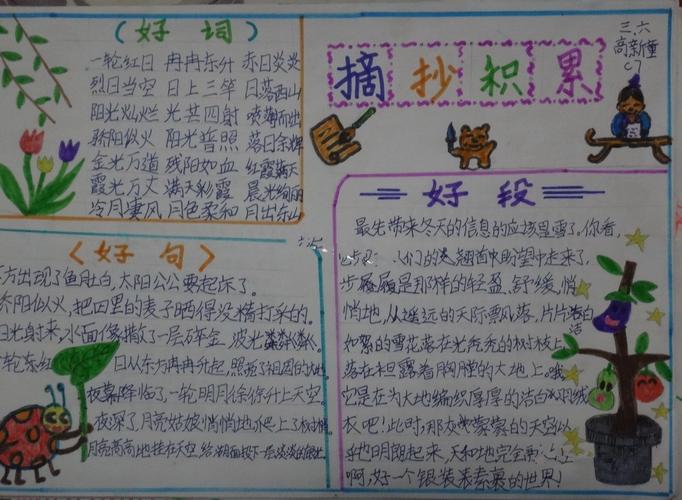 （好词）
一轮红日 冉冉东升 赤日炎炎
烈日当空 日上三竿 日落西山
阳光灿烂 光芒四射 喷薄而出
骄阳似火 阳光普照 落日余辉
金光万道 残阳如血 红霞满天
霞光万丈 满天彩霞 晨光绚丽
冷月凄风 月色柔和 月出东山
摘抄积累
三.六
高新童
C7
〈好句〉
方出现了鱼肚白，太阳公公要起床了。
骄阳似火，把四里的麦子晒得没精打采的。
阳光射来，水面像撒了一层碎金，波光粼粼。
轮东红 日从东方冉冉升起，照亮了祖国的大地。
夜幕降临了一轮明月徐徐升上天空
夜深了，月亮姑娘悄悄地爬上了树梢
月亮高高地挂在天空，给湖面披下一层淡淡的银
好段
最先带来冬天的信息的应该是雪了。你看，
们的翘首中盼望中走来了，
步履是那样的轻盈、舒缓，悄
悄地，从遥远的天际飘落，片片洁白
如絮的雪花落在光秃秃的树枝上
落在坦露着胸膛的大地上。哦，
它是在为大地编织厚厚的洁白羽绒
衣吧！此时，那灰蒙蒙的天空似
乎也明朗起来，天和地完全
啊，好一个银装素裹的世界！